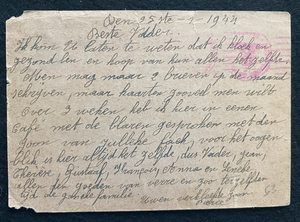 Den 25 Ste - 1 - 1944
Beste Vader.
Ik kom U te laten te weten dat ik kloek en
gezond ben en hoop van hun allen het zelfde.
Men mag maar 2 brieven op de maand
schryven, maar kaarten zooveel men wilt
Over 3 weken heb ik hier in eenen
Café met de klaren gesproken met den
zoon van Julleke fack, voor het oogen
blik is hier altijd het zelfde, dus Vader, Jean,
Therese, Gustaaf, François, Anna en
allen den goeden van verre en zoo
de ganse familie
Uwen